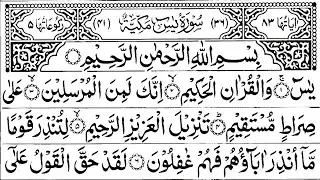 اٰیاتها ٨٣ (٣٦) سُوْرَةُ یٰسٓ مَكِّیَّةٌ (٤١) رکوعاتها ٥
بِسْمِ اللّٰهِ الرَّحْمٰنِ الرَّحِیْمِ
یٰسٓ ۚ وَالْقُرْاٰنِ الْحَكِیْمِ ۙ اِنَّكَ لَمِنَ الْمُرْسَلِیْنَ ۙ عَلٰی
صِرَاطٍ مُّسْتَقِیْمٍ ؕ تَنْزِیْلَ الْعَزِیْزِ الرَّحِیْمِ ۙ لِتُنْذِرَ قَوْمًا
مَّاۤ اُنْذِرَ اٰبَآؤُهُمْ فَهُمْ غٰفِلُوْنَ لَقَدْ حَقَّ الْقَوْلُ عَلٰۤی